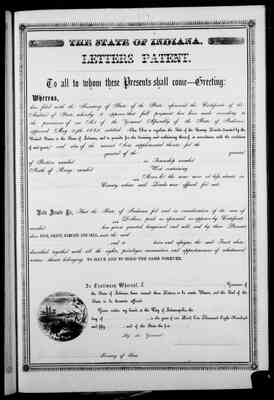 THE STATE OF INDIANA.
LETTERS PATENT.
To all to whom these Presents shall come—Greeting:
Whereas,
has filed with the Secretary of State of the State aforesaid the Certificate of the
Auditor of State whereby it appears that full payment has been made according to
the provisions of an Act of the General Assembly of the State of Indiana
approved May 1852 entitled
United States to the State of Indiana, and to provide for the draining and reclaiming thereof, in accordance with the condition
of said grant," and also of the several Acts supplemental thereto for the
quarter of the quarter
of Section numbered in Township numbered
North of Range numbered West containing
Acres
County where said Lands were offered for sale.
Now Know Ye, That the State of Indiana for and in consideration of the sum of
Dollars, paid as aforesaid as appears by Certificate
numbered has given granted bargained and sold, and by these Presents
does GIVE, GRANT, BARGAIN AND SELL, unto the said
and to heirs and assigns, the said Tract above
described together with all the rights, privileges, immunities and appurtenances of whatsoever
nature thereto belonging TO HAVE AND TO HOLD THE SAME FOREVER.
In Testimony Whereof, I, Governor of
the State of Indiana have caused these Letters to be made Patent, and the Seal of the
State to be hereunto affixed.
Given under my hand, at the City of Indianapolis, the
day of in the year of our Lord One Thousand Eight Hundred
and fifty and of the State the
By the Governor
Secretary of State